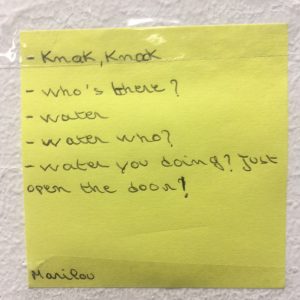 - Knok, Knock
- who's there?
- water
- water who?
- water you doing? Just
open the door!
Marilou